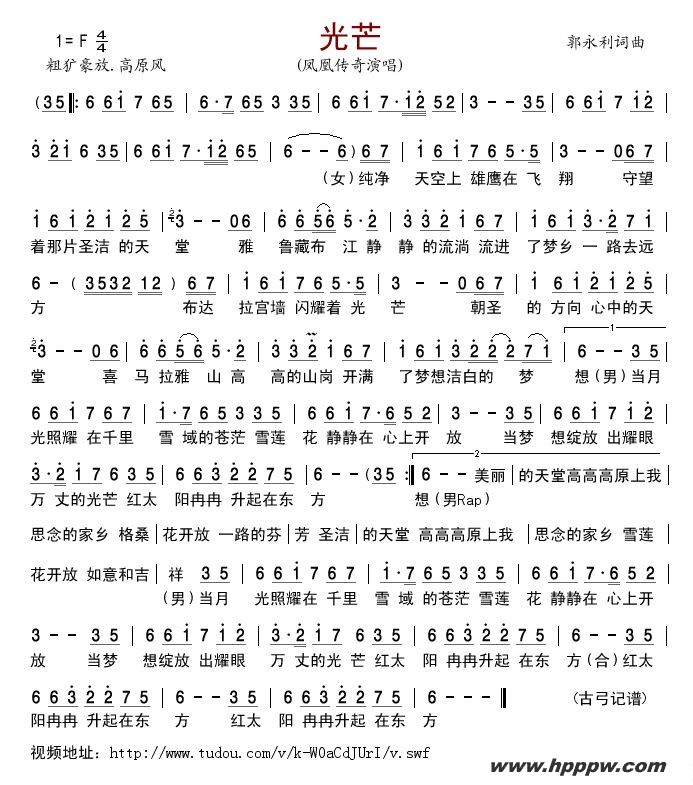 光芒
1= F 4/4
郭永利词曲
粗犷豪放.高原风
(凤凰传奇演唱)
(35|: 6 6i 7 65 | 6·7 65 3 35 | 6 6i 7·i2 52 | 3 - - 35 | 6 6i 67 i2 |
3 2i 6 35 | 6 6i 7·i2 65 | 6 - - 6) 67 | i 6i 76 5·5 | 3 - - 067 |
(女)纯净 天空上 雄鹰在 飞 翔 守望
i 6i 2i 25 | 3 - - 06 | 6 656 5·2 | 3 32 i 67 | i 6i 3·2 7i |
着那片圣洁 的天 堂 雅 鲁藏布 江 静 静 的流淌 流进 了梦乡 一 路去远
6 - (3532 12) 67 | i 6i 76 5·5 | 3 - - 067 | i 6i 2i 25 |
方 布达 拉宫墙 闪耀着 光 芒 朝圣 的 方向 心中的天
3 - - 06 | 6 656 5·2 | 3 32 i 67 | i 6i 322 27i | 6 - - 35 |
堂 喜 马 拉雅 山 高 高的山岗 开满 了梦想洁白的 梦 想(男)当月
6 6i 67 67 | i·7 65 35 35 | 6 6i 7·6 52 | 3 - - 35 | 6 6i 67 i2 |
光照耀 在千里 雪 域的苍茫 雪莲 花 静静在 心上开 放 当梦 想绽放 出耀眼
3·2 17 6i 35 | 6 63 22 75 | 6 - - (35 :| 6 - - 美丽 | 的天堂高高高原上我 |
万 丈的光芒 红太 阳冉冉 升起在东 方 想(男Rap)
思念的家乡 格桑|花开放 一路的芬|芳 圣洁|的天堂 高高高原上我|思念的家乡 雪莲|
花开放 如意和吉|祥 35 | 6 6i 67 67 | i·7 65 35 35 | 6 6i 7·6 52 |
(男)当月 光照耀在 千里 雪 域 的苍茫 雪莲 花 静静在 心上开
3 - - 35 | 6 6i 67 i2 | 3·2 i7 6i 35 | 6 63 22 75 | 6 - - 35 |
放 当梦 想绽放 出耀眼 万 丈的光 芒 红太 阳 冉冉升起 在东 方(合)红太
6 63 22 75 | 6 - - 35 | 6 63 22 75 | 6 - - ‖ (古弓记谱)
阳冉冉 升起在东 方 红太 阳 冉冉升起在东 方
视频地址: http://www.tudou.com/v/k-W0aCdJUrI/v.swf
www.hpppw.com